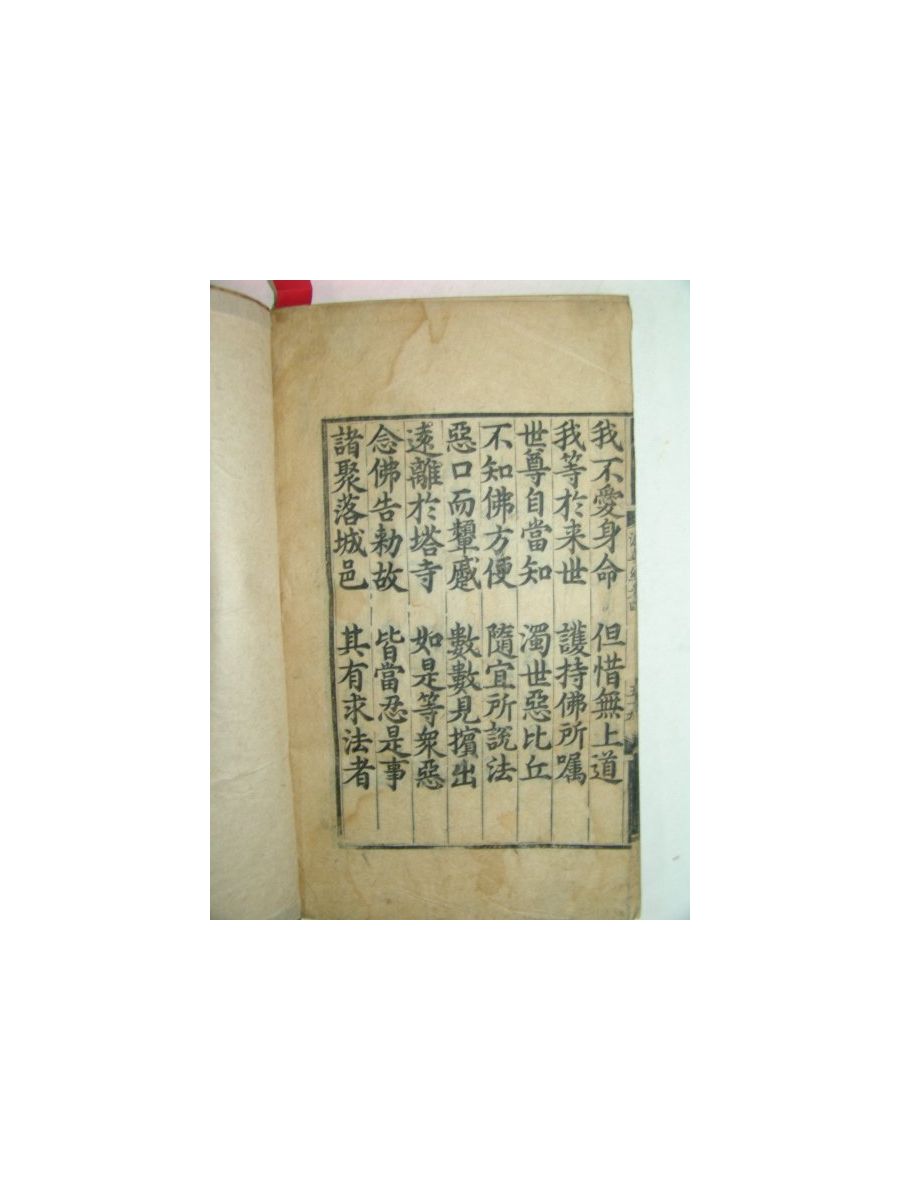 我不愛身命 但惜無上道
我等於来世 護持佛所嘱
世尊自當知 濁世惡比丘
不知佛方便 隨宜所說法
惡口而顰蹙 數數見擯出
遠離於塔寺 如是等衆惡
念佛告勅故 皆當忍是事
諸聚落城邑 其有求法者